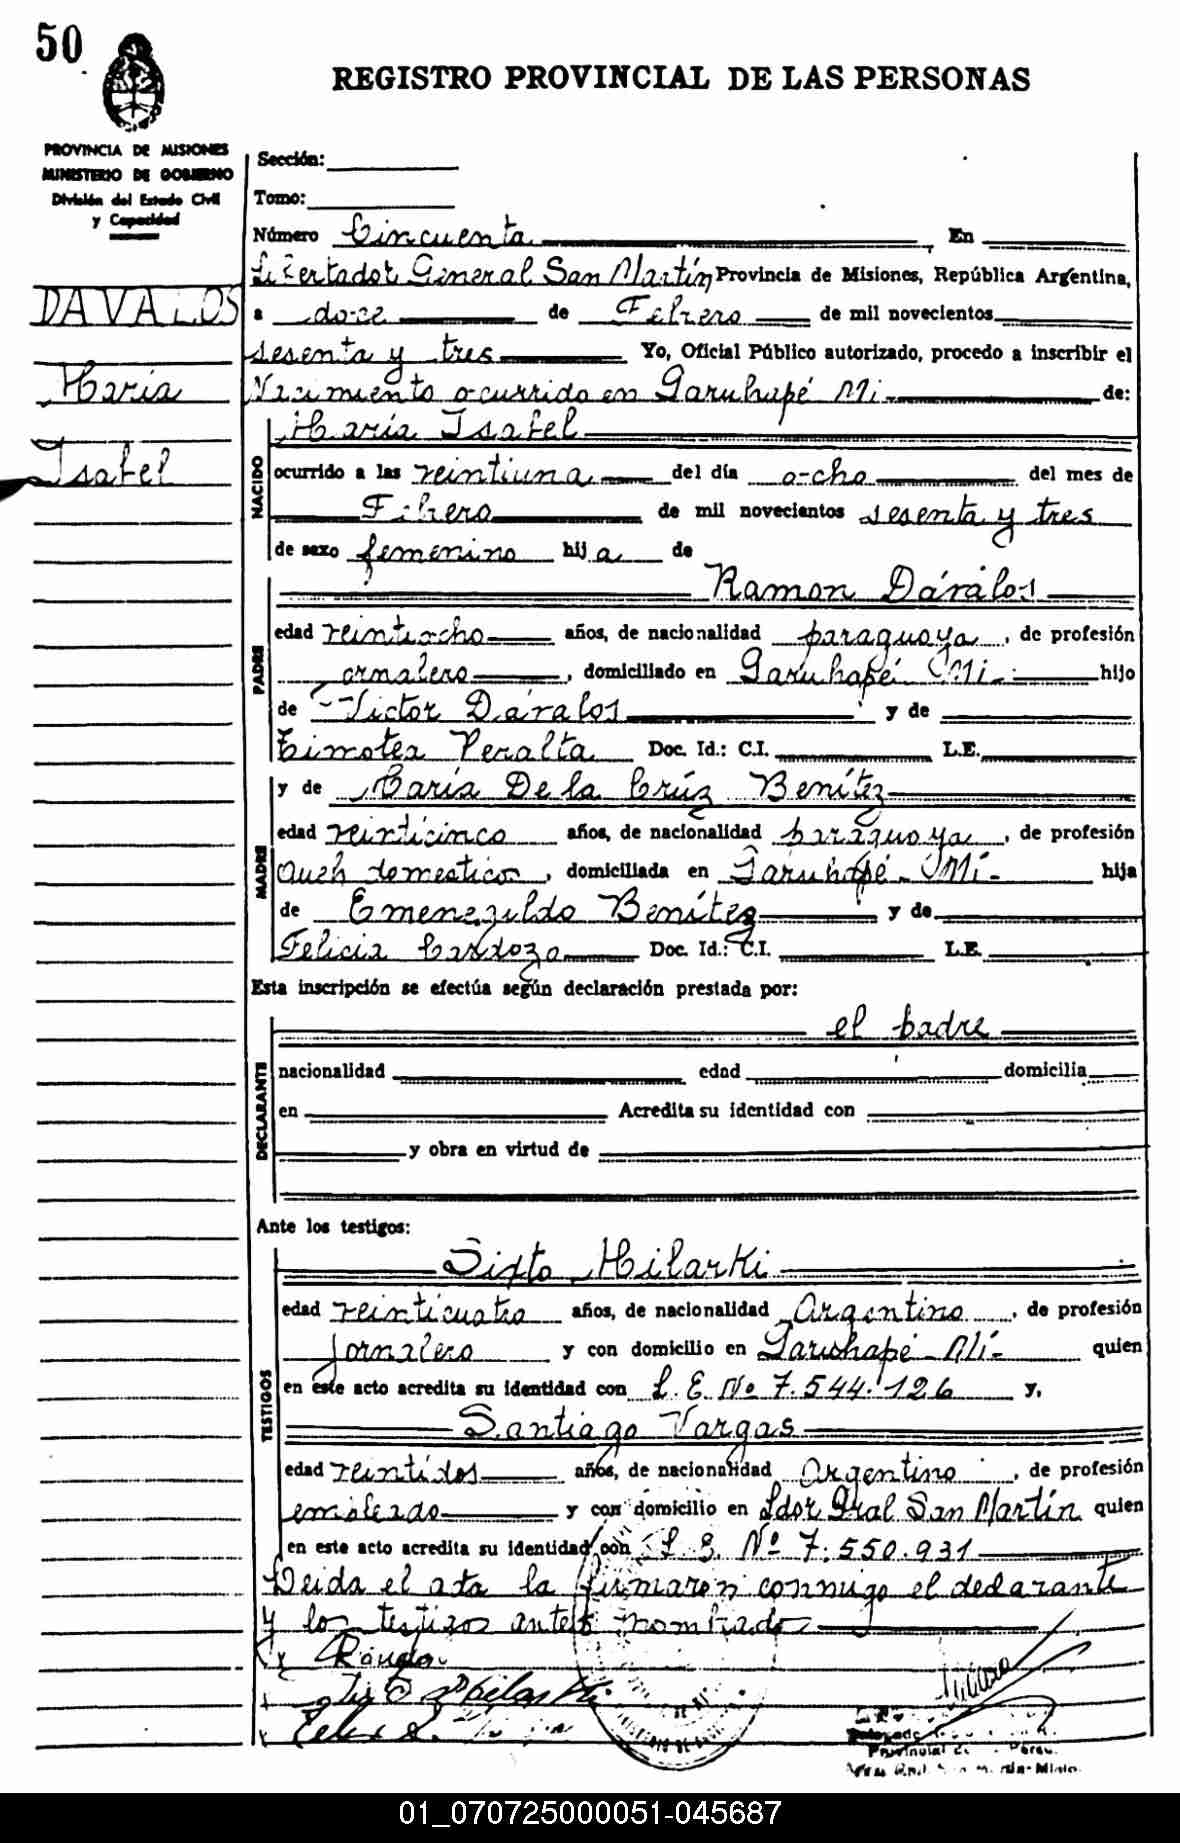 50
REGISTRO PROVINCIAL DE LAS PERSONAS
PROVINCIA DE MISIONES
MINISTERIO DE GOBIERNO
División del Estado Civil
y Capacidad
DAVALOS
María
Isabel
Sección:
Tomo:
Número Cincuenta, En
Libertador General San Martín Provincia de Misiones, República Argentina,
a doce de Febrero de mil novecientos
sesenta y tres Yo, Oficial Público autorizado, procedo a inscribir el
Nacimiento ocurrido en Garuhapé Mi de:
NACIDO
María Isabel
ocurrido a las veintiuna del día ocho del mes de
Febrero de mil novecientos sesenta y tres
de sexo femenino hija de
PADRE
Ramon Dávalos
edad veintiocho años, de nacionalidad paraguaya, de profesión
jornalero, domiciliado en Garuhapé Mi- hijo
de Victor Dávalos y de
Timotea Peralta Doc. Id.: C.I. L.E.
MADRE
y de María De la Crúz Benítez
edad veinticinco años, de nacionalidad paraguaya, de profesión
Queh domesticos, domiciliada en Garuhapé - Mi- hija
de Emenezildo Benítez y de
Felicia Cardozo Doc. Id.: C.I. L.E.
Esta inscripción se efectúa según declaración prestada por:
DECLARANTE
el padre
nacionalidad edad domicilia
en Acredita su identidad con
y obra en virtud de
Ante los testigos:
TESTIGOS
Sixto Hilarki
edad veinticuatro años, de nacionalidad Argentino, de profesión
Jornalero y con domicilio en Garuhapé - Mi- quien
en este acto acredita su identidad con L.E. No 7.544.126 y,
Santiago Vargas
edad veintidos años, de nacionalidad Argentino, de profesión
empleado y con domicilio en Ldor Gral San Martín quien
en este acto acredita su identidad con L.E. Nº 7.550.931
Leida el acta la firmaron conmigo el declarante
y los testigos antes nombrado
Delegado
Provincial
01_070725000051-045687